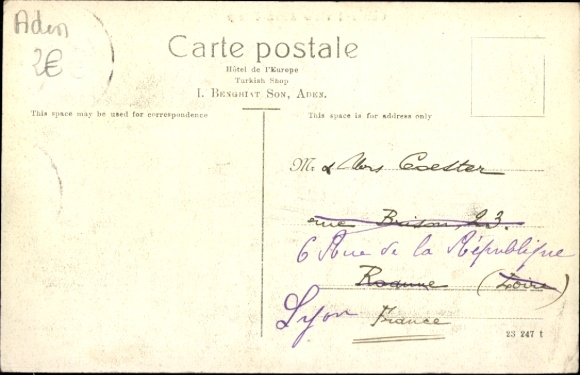 Aden
2€
Carte postale
Hôtel de l'Europe
Turkish Shop
I. Benghiat Son, Aden.
This space may be used for correspondence
This space is for address only
Mr & Mrs Coester
rue Brison, 23.
6 Rue de la République
Roanne (Loire)
Lyon France
23 247 t